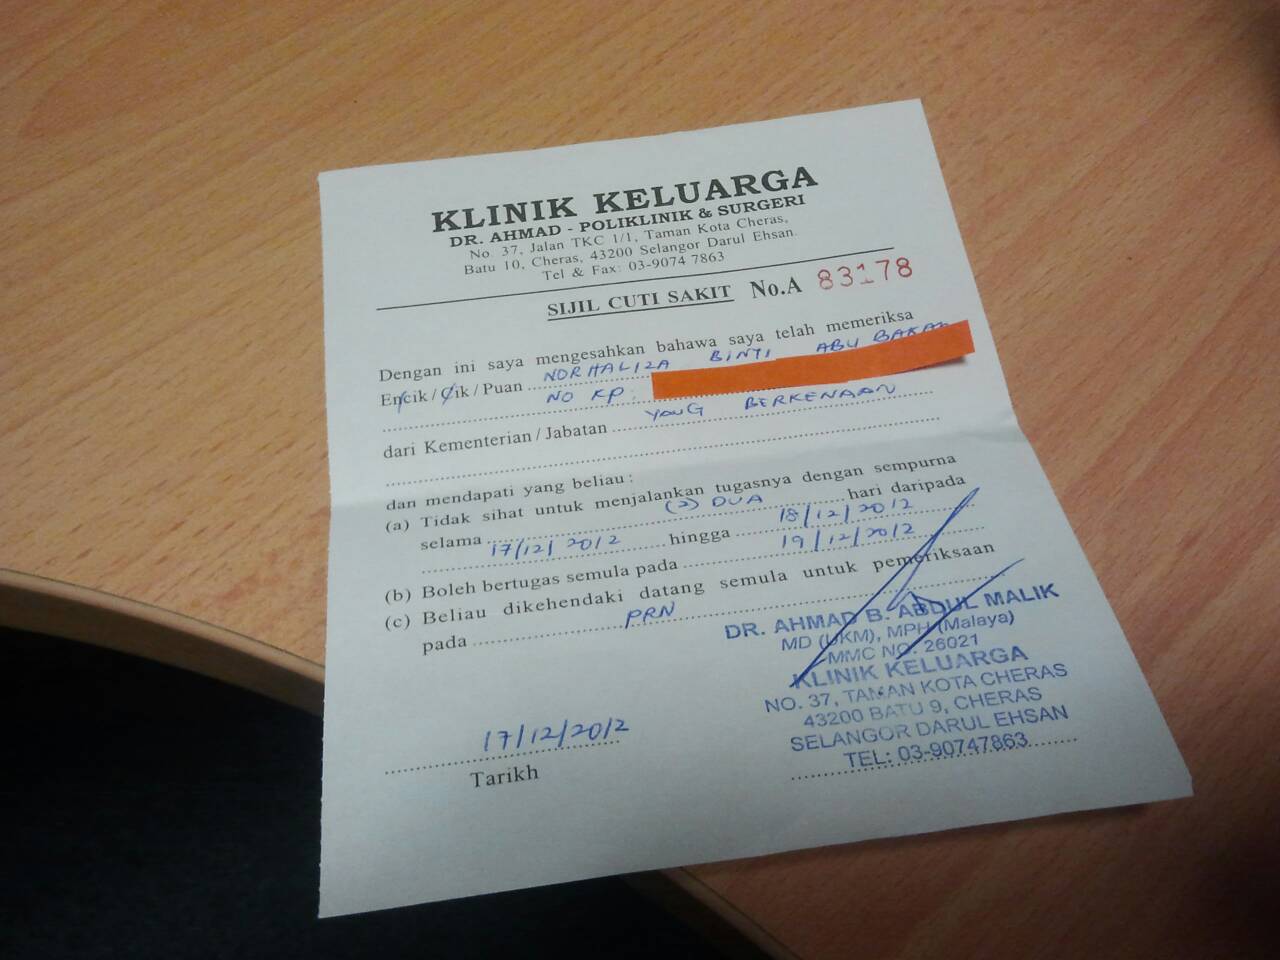 KLINIK KELUARGA
DR. AHMAD - POLIKLINIK & SURGERI
No. 37, Jalan TKC 1/1, Taman Kota Cheras,
Batu 10, Cheras, 43200 Selangor Darul Ehsan.
Tel & Fax: 03-9074 7863
SIJIL CUTI SAKIT No.A 83178
Dengan ini saya mengesahkan bahawa saya telah memeriksa
Encik / Cik / Puan NORHALIZA BINTI ABU BAKAR
NO KP:
dari Kementerian / Jabatan YANG BERKENAAN
dan mendapati yang beliau :
(a) Tidak sihat untuk menjalankan tugasnya dengan sempurna
selama (2) DUA hari daripada
17/12/2012 hingga 18/12/2012
(b) Boleh bertugas semula pada 19/12/2012
(c) Beliau dikehendaki datang semula untuk pemeriksaan
pada PRN
DR. AHMAD B. ABDUL MALIK
MD (UKM), MPH (Malaya)
MMC NO. 26021
KLINIK KELUARGA
NO. 37, TAMAN KOTA CHERAS
43200 BATU 9, CHERAS
SELANGOR DARUL EHSAN
TEL: 03-90747863
17/12/2012
Tarikh